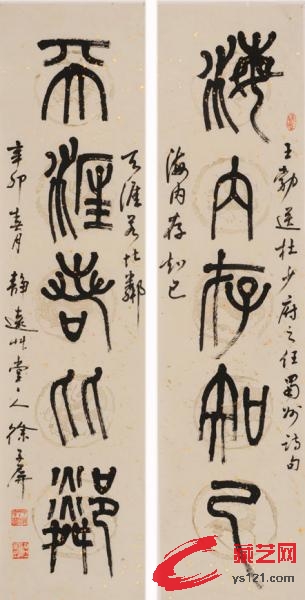 海内存知己
王勃送杜少府之任蜀州诗句
海内存知己
天涯若比鄰
天涯若比鄰
辛卯春月静遠艸堂主人徐子屏
藏艺网
ys121.com